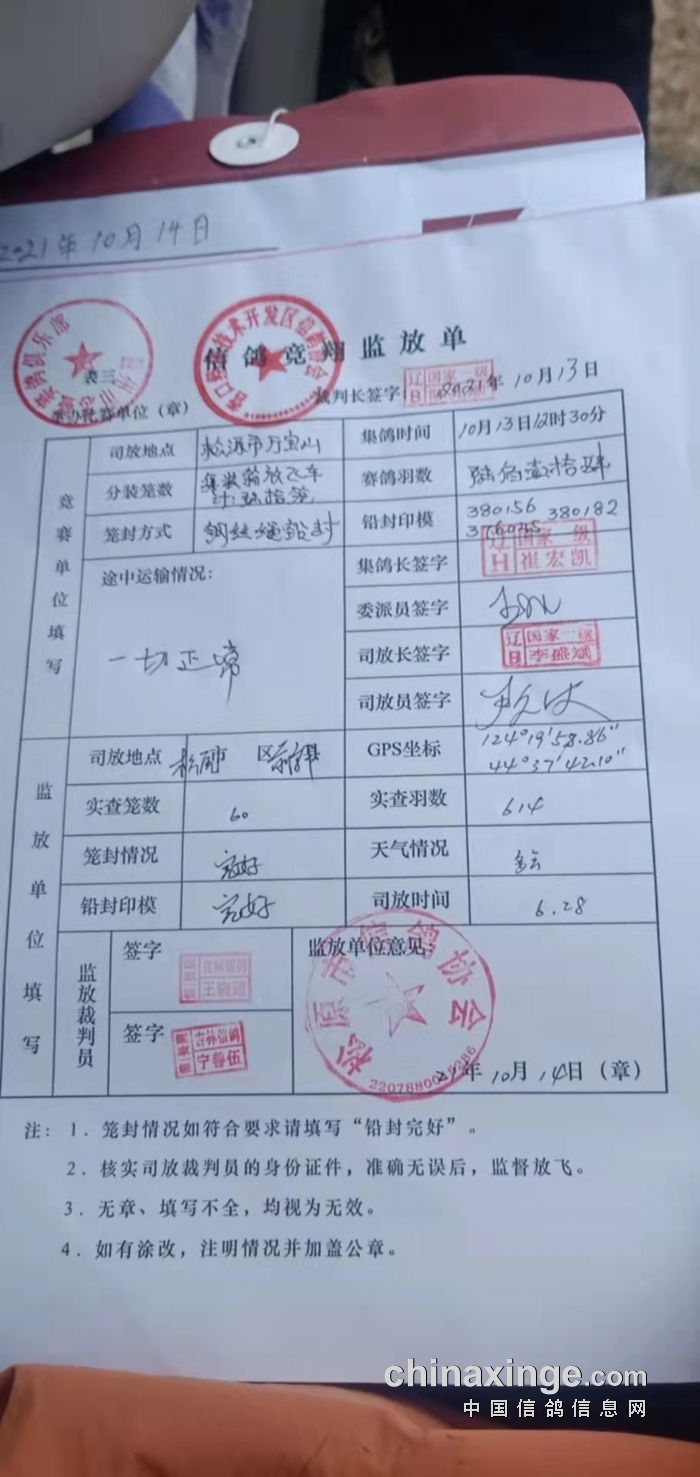 2021年10月14日
信鸽竞翔监放单
表三
举办比赛单位（章）
裁判长签字
2021年10月13日
辽 国家一级
竞赛单位填写
司放地点 松源市万宝山 集鸽时间 10月13日12时30分
分装笼数 集装箱放飞车 赛鸽羽数 陆佰壹拾肆
笼封方式 钢丝绳铅封 铅封印模 380156 380182
途中运输情况： 集鸽长签字 辽日 国家一级 崔宏凯
一切正常
委派员签字
司放长签字 辽日 国家一级 李盛斌
司放员签字
监放单位填写
司放地点 GPS坐标 124°19'58.86"
44°37'42.10"
实查笼数 60 实查羽数 614
笼封情况 完好 天气情况
铅封印模 完好 司放时间 6.28
监放裁判员
签字 国家一级 吉林信鸽
监放单位意见：
松原市信鸽协会
签字 国家一级 吉林信鸽 宁善伍
21年10月14日（章）
注：1．笼封情况如符合要求请填写“铅封完好”。
2．核实司放裁判员的身份证件，准确无误后，监督放飞。
3．无章、填写不全，均视为无效。
4．如有涂改，注明情况并加盖公章。
chinaxinge.com
中国信鸽信息网